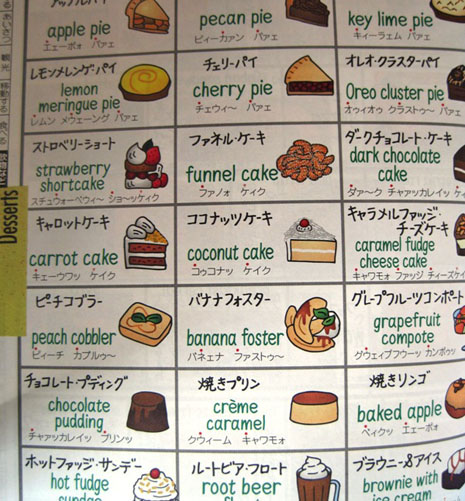 アップルパイ
apple pie
エァーポォ パァェ
pecan pie
ピィーカァン パァェ
key lime pie
キィーラェム パァェ
レモンメレンゲ・パイ
lemon
meringue pie
レムン メウェーンヴ パァェ
チェリー・パイ
cherry pie
チェウィ〜 パァェ
オレオ・クラスターパイ
Oreo cluster pie
オゥイオゥ クラストゥ〜 パァェ
ストロベリーショート
strawberry
shortcake
スチュウォーベウィー ショーッケイク
ファネル・ケーキ
funnel cake
ファノォ ケイク
ダークチョコレート・ケーキ
dark chocolate
cake
ダァ〜ク チャァッカレイッ
キャロットケーキ
carrot cake
キェーウワッ ケイク
ココナッツケーキ
coconut cake
コゥコナッ ケイク
キャラメルファッジ・
チーズケーキ
caramel fudge
cheese cake
キャワモォ ファッジ チィーズケイ
ピーチコブラー
peach cobbler
ピィーチ カブルゥ〜
バナナフォスター
banana foster
バネェナ ファストゥ〜
グレープフルーツコンポート
grapefruit
compote
グウェイプフウーツ カンポゥッ
チョコレート・プディング
chocolate
pudding
チャァッカレイッ プリンッ
焼きプリン
crème
caramel
クウィーム キャワモォ
焼きリンゴ
baked apple
ベイクッ エァーポォ
ホットファッジ・サンデー
hot fudge
sundae
ルートビア・フロート
root beer
ブラウニー&アイス
brownie with
ice cream
Desserts
観光
移動する
食べる